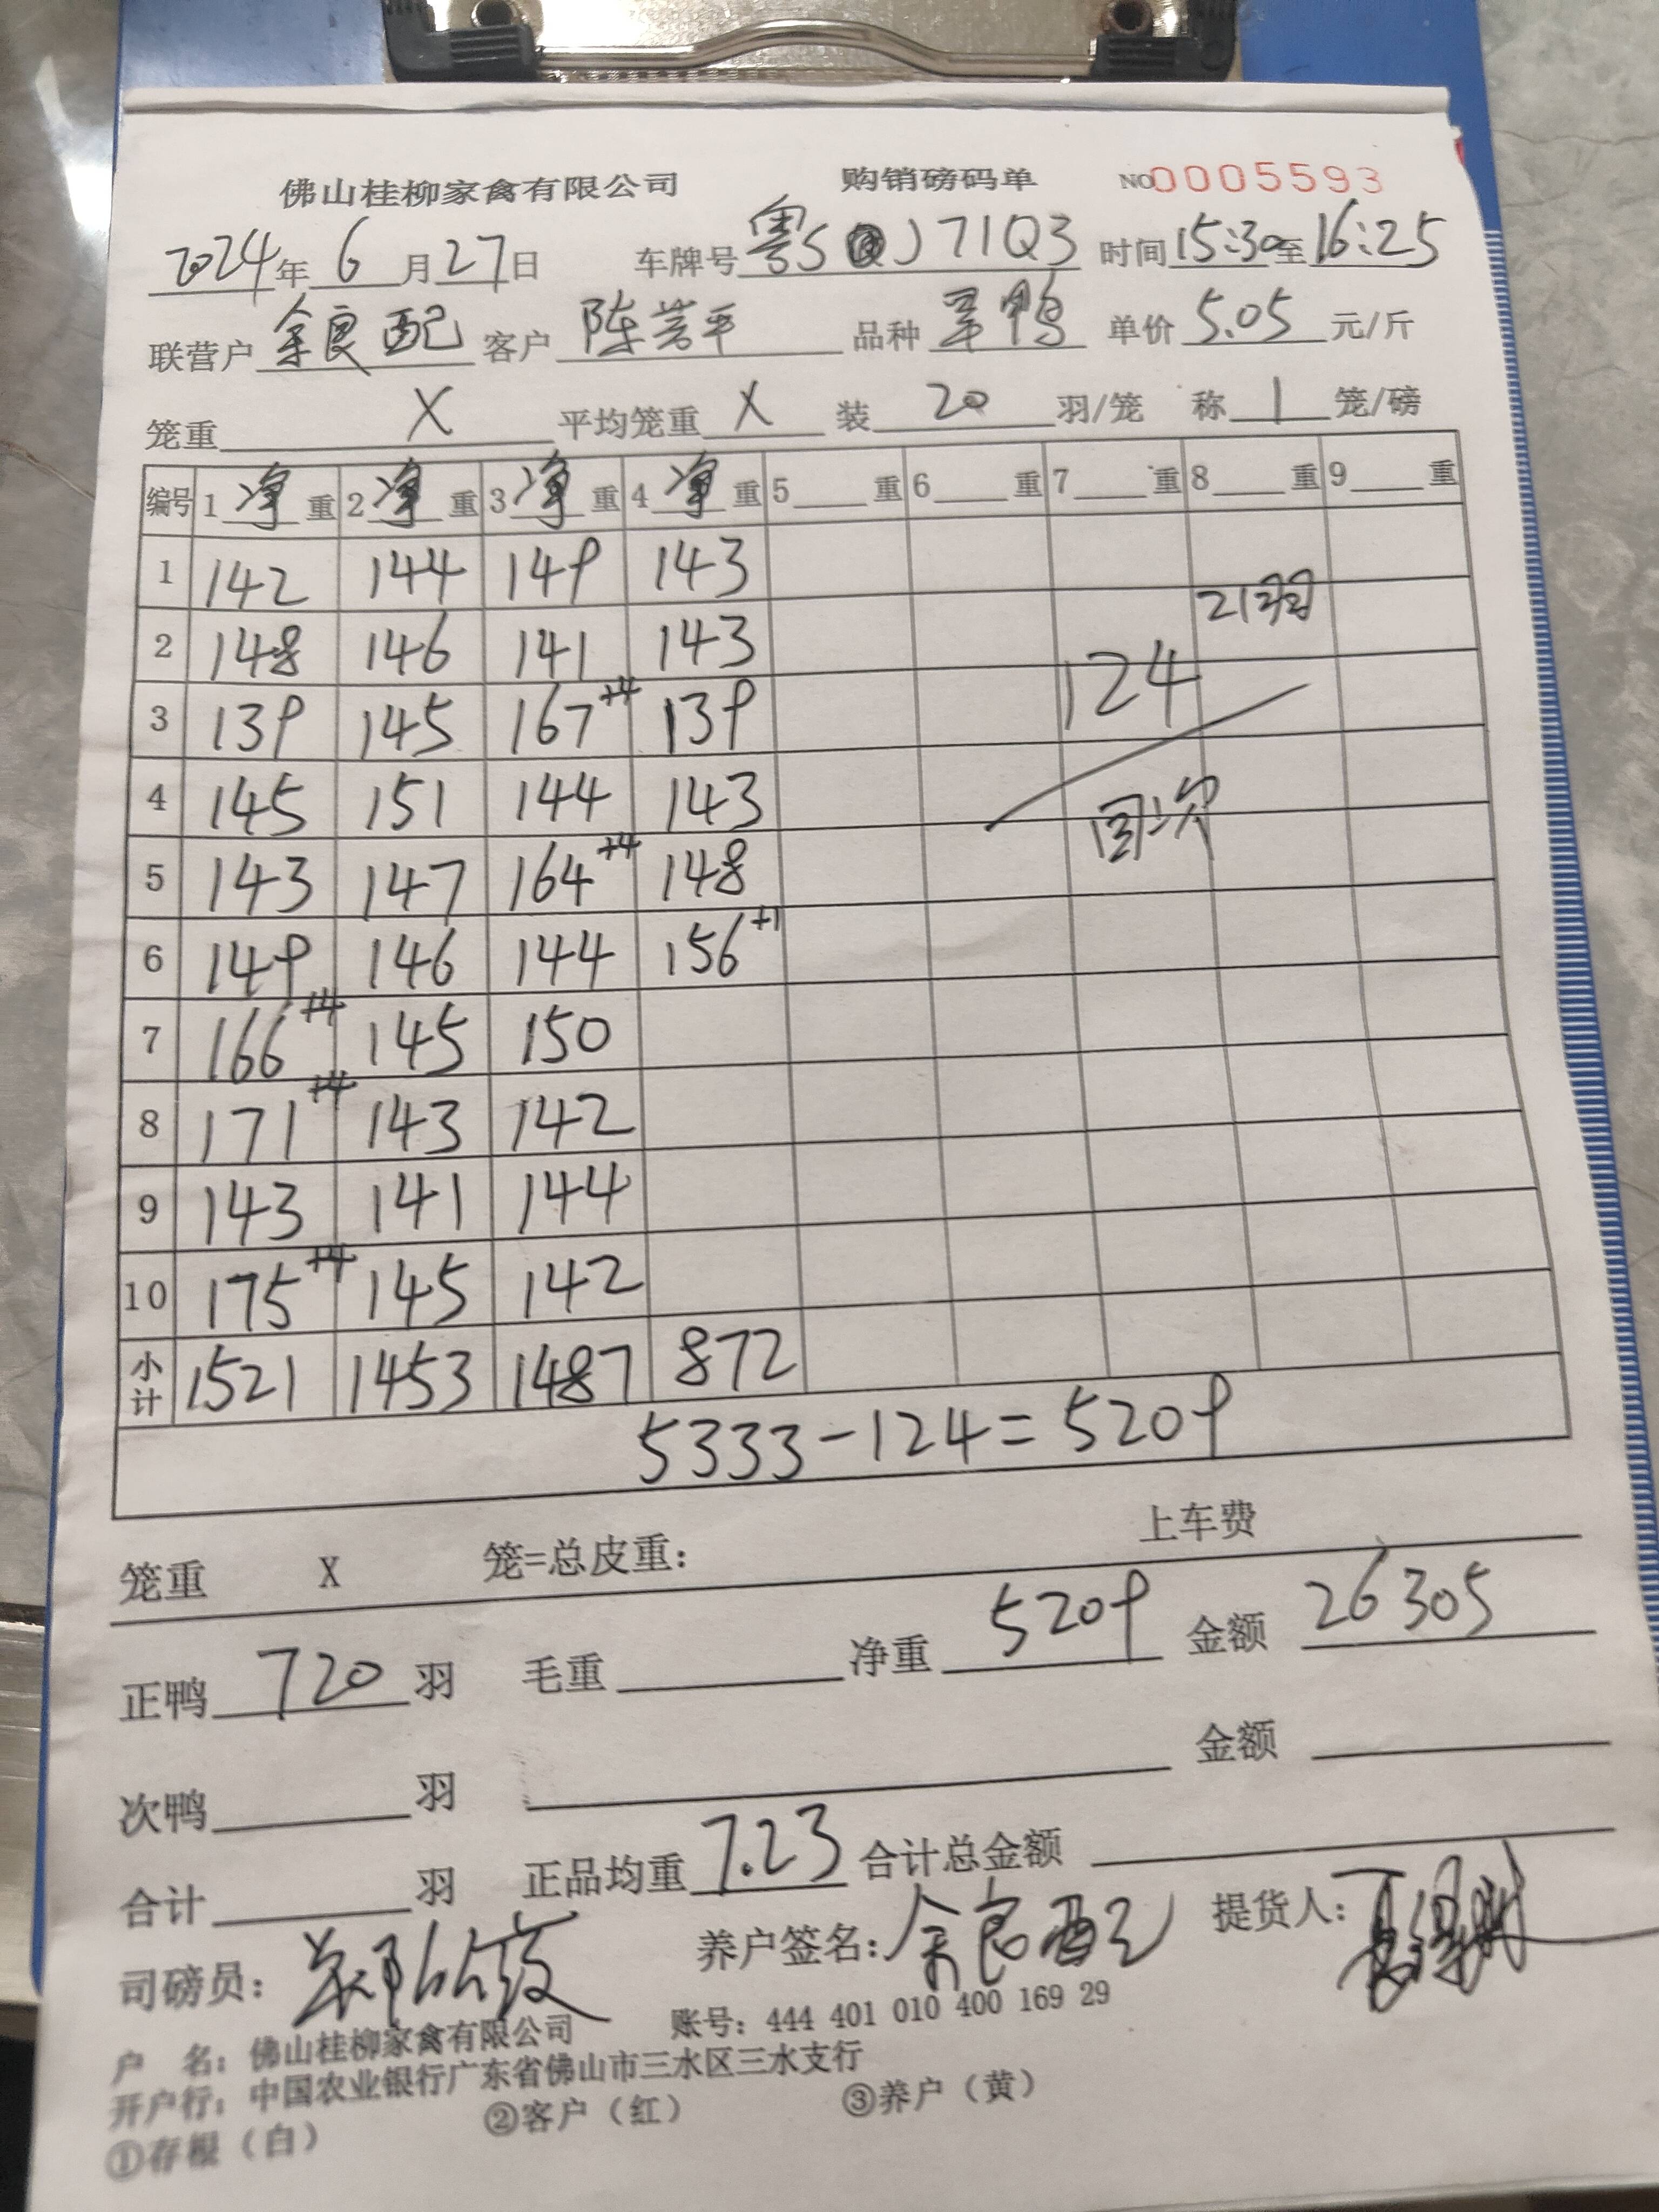 佛山桂柳家禽有限公司 购销磅码单 NO0005593
2024年6月27日 车牌号粤SJ71Q3 时间15:30至16:25
联营户余良配 客户陈 平 品种 鸭 单价5.05元/斤
笼重X 平均笼重X 装20羽/笼 称1笼/磅
编号 1净重 2净重 3净重 4净重 5重 6重 7重 8重 9重
1 142 144 149 143
21羽
2 148 146 141 143
124
3 139 145 167+4 139
4 145 151 144 143
回次
5 143 147 164+4 148
6 149 146 144 156+1
7 166+4 145 150
8 171+4 143 142
9 143 141 144
10 175+4 145 142
小计 1521 1453 1487 872
5333-124=5209
上车费
笼重 X 笼=总皮重:
正鸭720羽 毛重 净重5209 金额26305
次鸭 羽 金额
合计 羽 正品均重7.23 合计总金额
司磅员: 养户签名:余良配 提货人:
户 名:佛山桂柳家禽有限公司 账号:444 401 010 400 169 29
开户行:中国农业银行广东省佛山市三水区三水支行
①存根(白) ②客户(红) ③养户(黄)